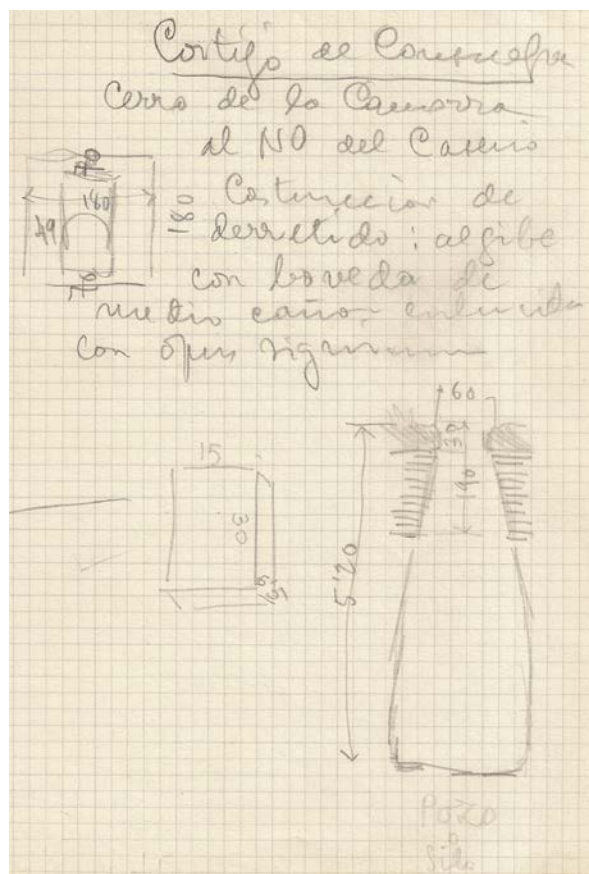 Cortijo de Consuegra
Cerro de la Camorra
al NO del Caserio
180
49
180
Costrucción de
derretido: algibe
con boveda de
medio cañon enlucida
con opus signinum
60
30
190
15
30
5,20
Pozo
o
Silo